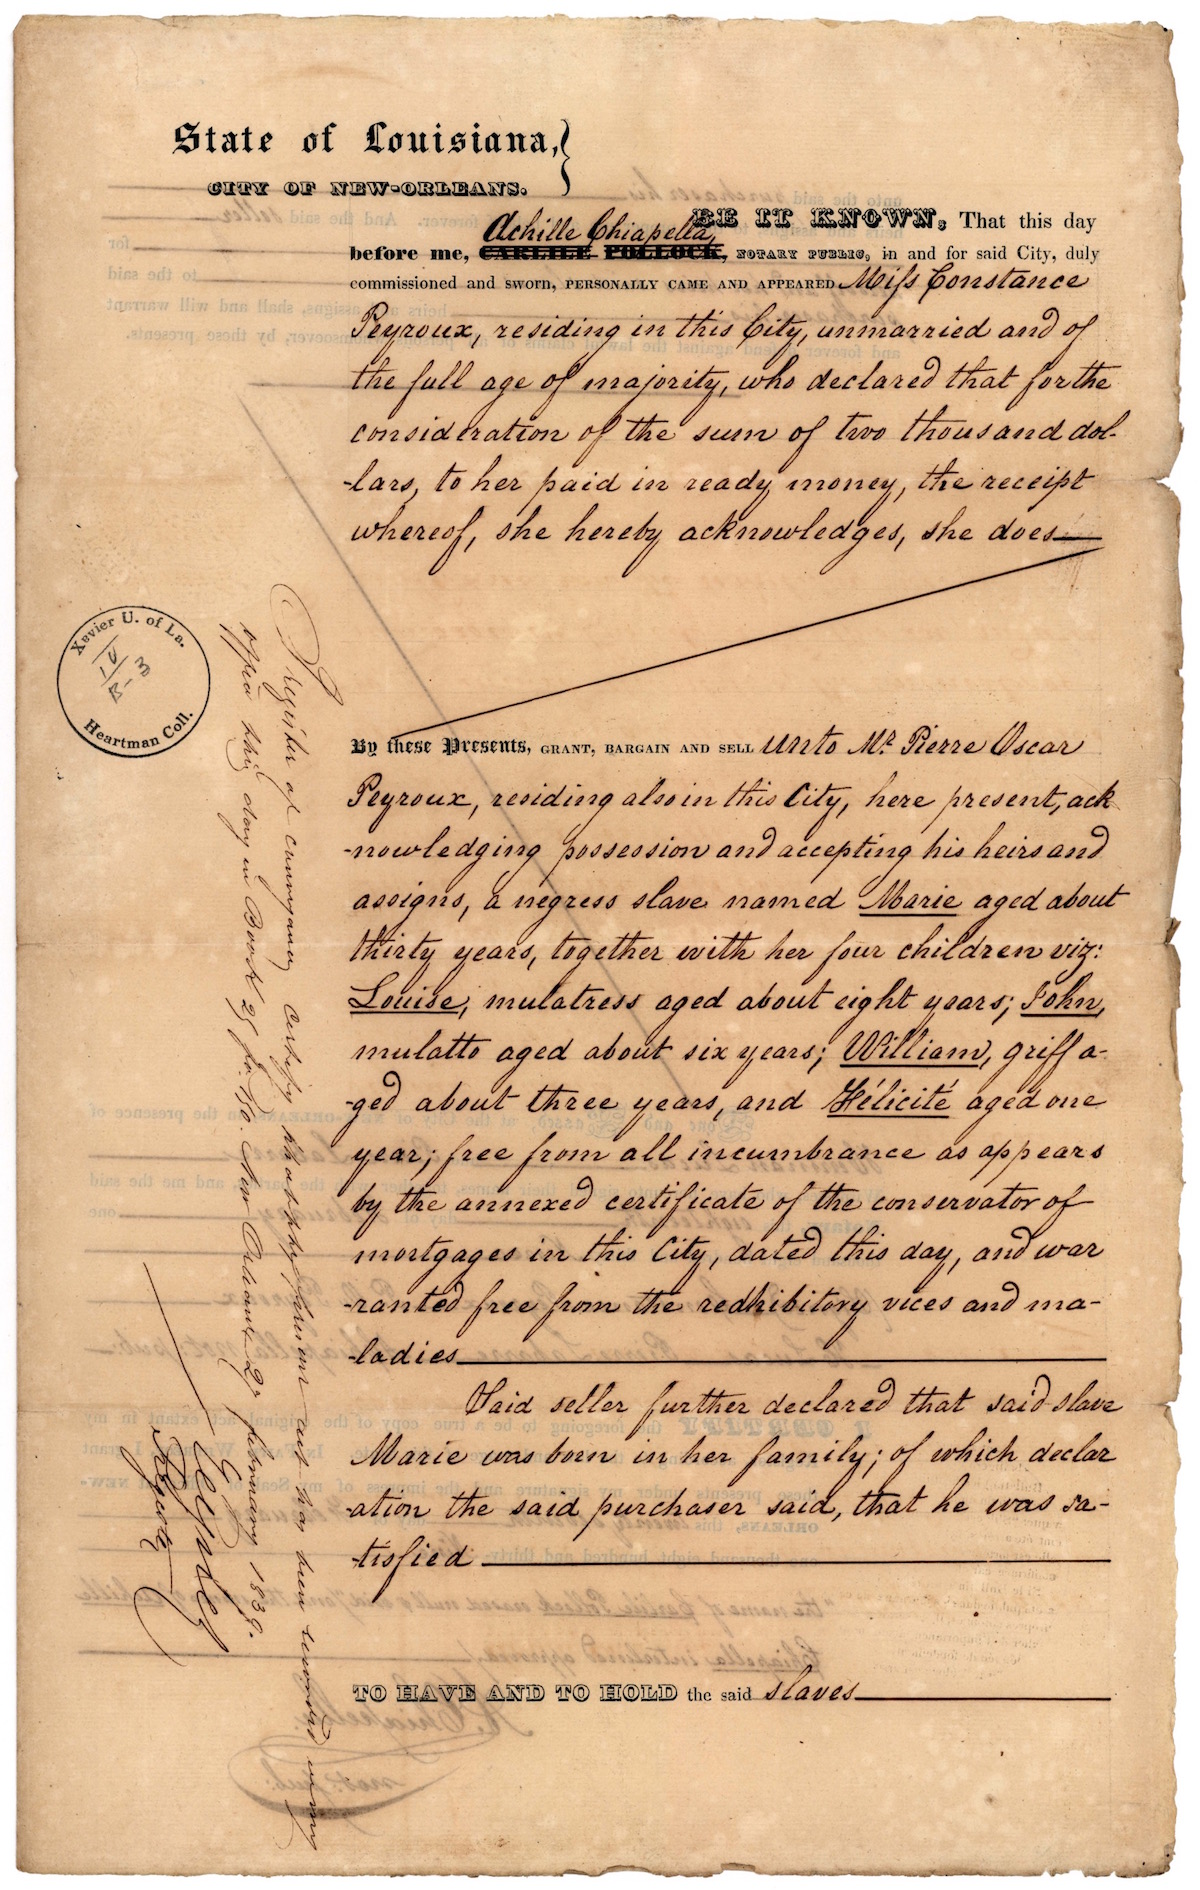 State of Louisiana,
CITY OF NEW-ORLEANS.
BE IT KNOWN, That this day
Achille Chiapella,
before me, CARLILE POLLOCK, NOTARY PUBLIC, in and for said City, duly
commissioned and sworn, PERSONALLY CAME AND APPEARED Miss Constance
Peyroux, residing in this City, unmarried and of
the full age of majority, who declared that for the
consideration of the sum of two thousand dol-
-lars, to her paid in ready money, the receipt
whereof, she hereby acknowledges, she does
By these Presents, GRANT, BARGAIN AND SELL unto Mr. Pierre Oscar
Peyroux, residing also in this City, here present, ack
-nowledging possession and accepting his heirs and
assigns, a negress slave named Marie aged about
thirty years, together with her four children viz:
Louise, mulatress aged about eight years; John,
mulatto aged about six years; William, griff a-
-ged about three years, and Félicité aged one
year; free from all incumbrance as appears
by the annexed certificate of the conservator of
mortgages in this City, dated this day, and war
-ranted free from the redhibitory vices and ma-
-ladies
Said seller further declared that said slave
Marie was born in her family; of which declar
-ation the said purchaser said, that he was sa-
-tisfied
TO HAVE AND TO HOLD the said slaves
Xavier U. of La.
IV
B-3
Heartman Coll.
Register of conveyances certify that the present act has been recorded in my
office this day in Book 25 fo. New Orleans 2 february 1839.
Register